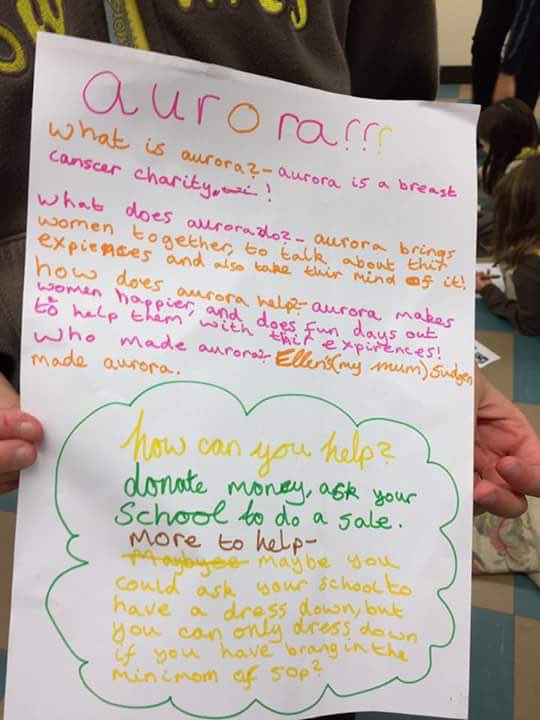 aurora!!!
what is aurora?- aurora is a breast
canscer charity !
what does aurora do?- aurora brings
women together, to talk about thir
expiences and also take thir mind of it!
how does aurora help?- aurora makes
women happier, and does fun days out
to help them with thir expirences!
who made aurora? Ellen's (my mum) Sudgen
made aurora.
how can you help?
donate money, ask your
school to do a sale.
More to help-
Maybyee maybe you
could ask your school to
have a dress down, but
you can only dress down
if you have brang in the
minimom of 50p?